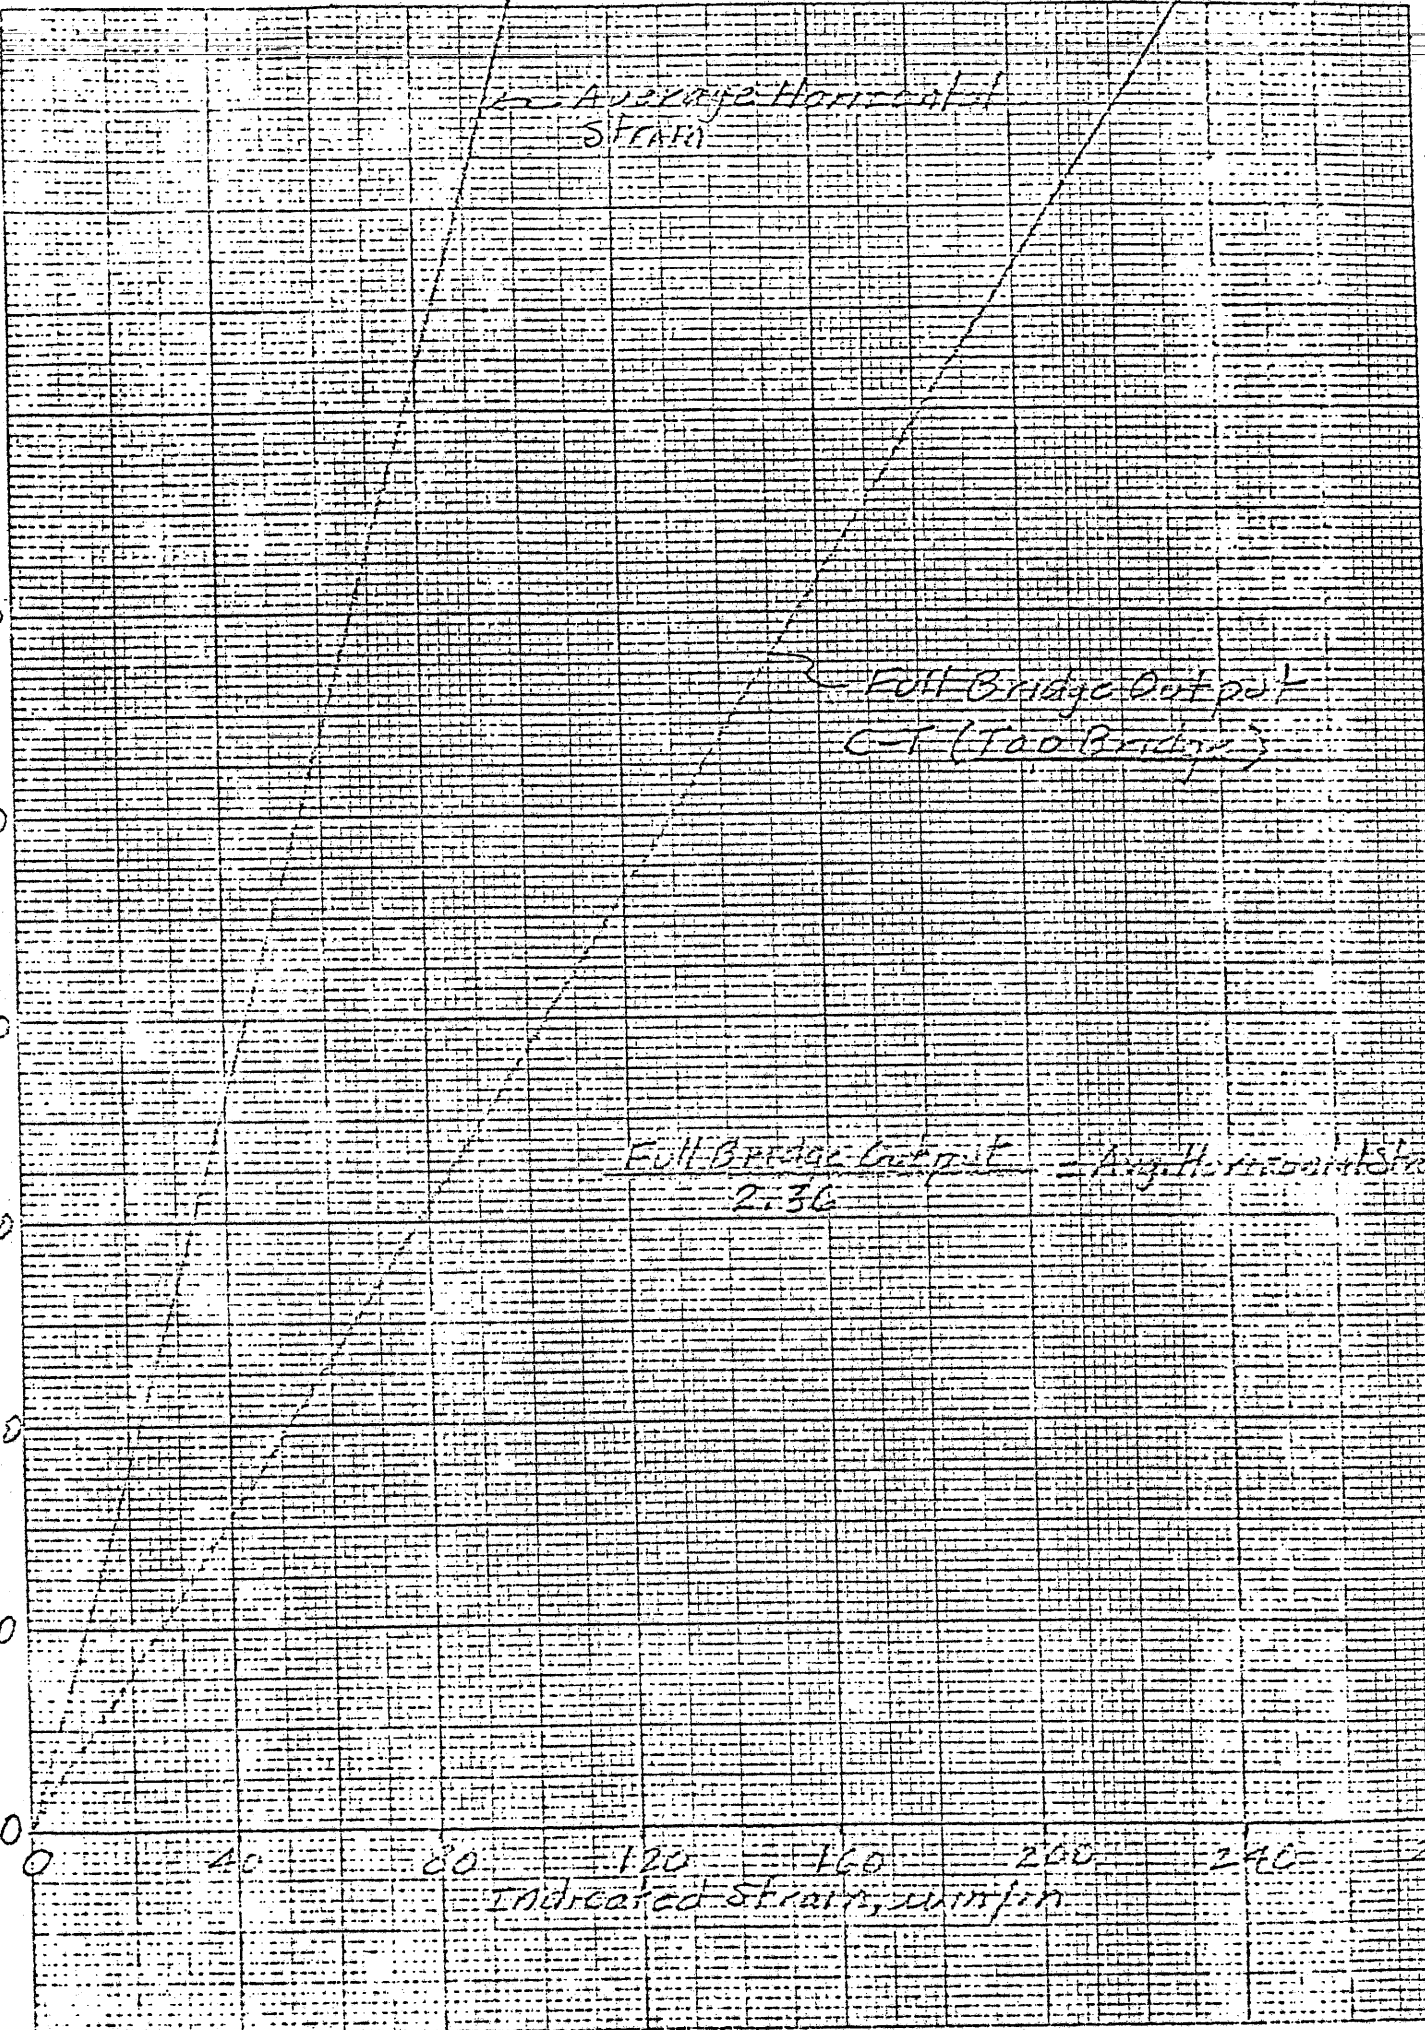 Average Horizontal
Strain
Full Bridge Output
C-T (Top Bridge)
Full Bridge Output = Avg. Horizontal Stra
2.36
0
0
0
0
0
0
0
0 40 80 120 160 200 240
Indicated Strain, μin/in